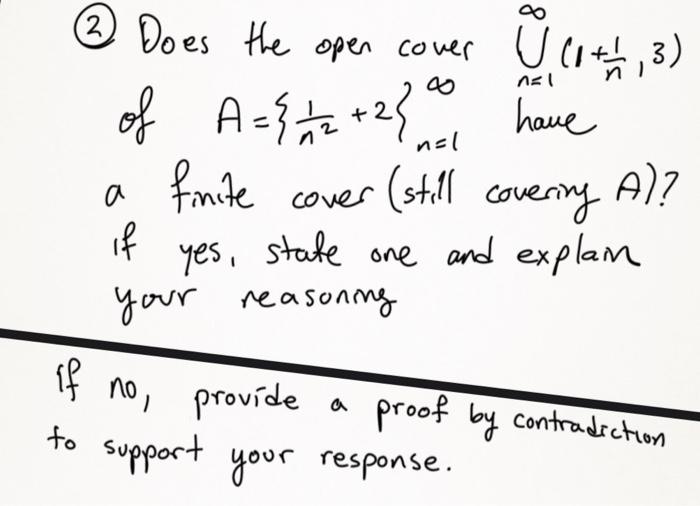 ② Does the open cover ∞⋃n=1 (1+1/n, 3)
of A = {1/n² + 2}∞n=1 have
a finite cover (still covering A)?
if yes, state one and explain
your reasoning
if no, provide a proof by contradiction
to support your response.